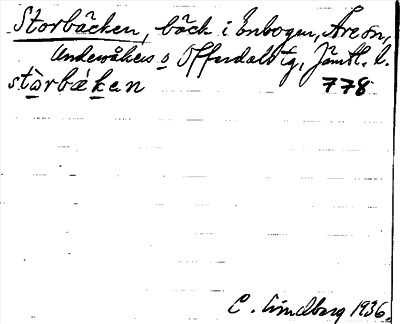 Storbäcken, bäck i Enbogen, Åreon,
Undersåkers o Offerdals tg, Jämtl. l.
stòrbákan 778
C. Lindberg 1936.